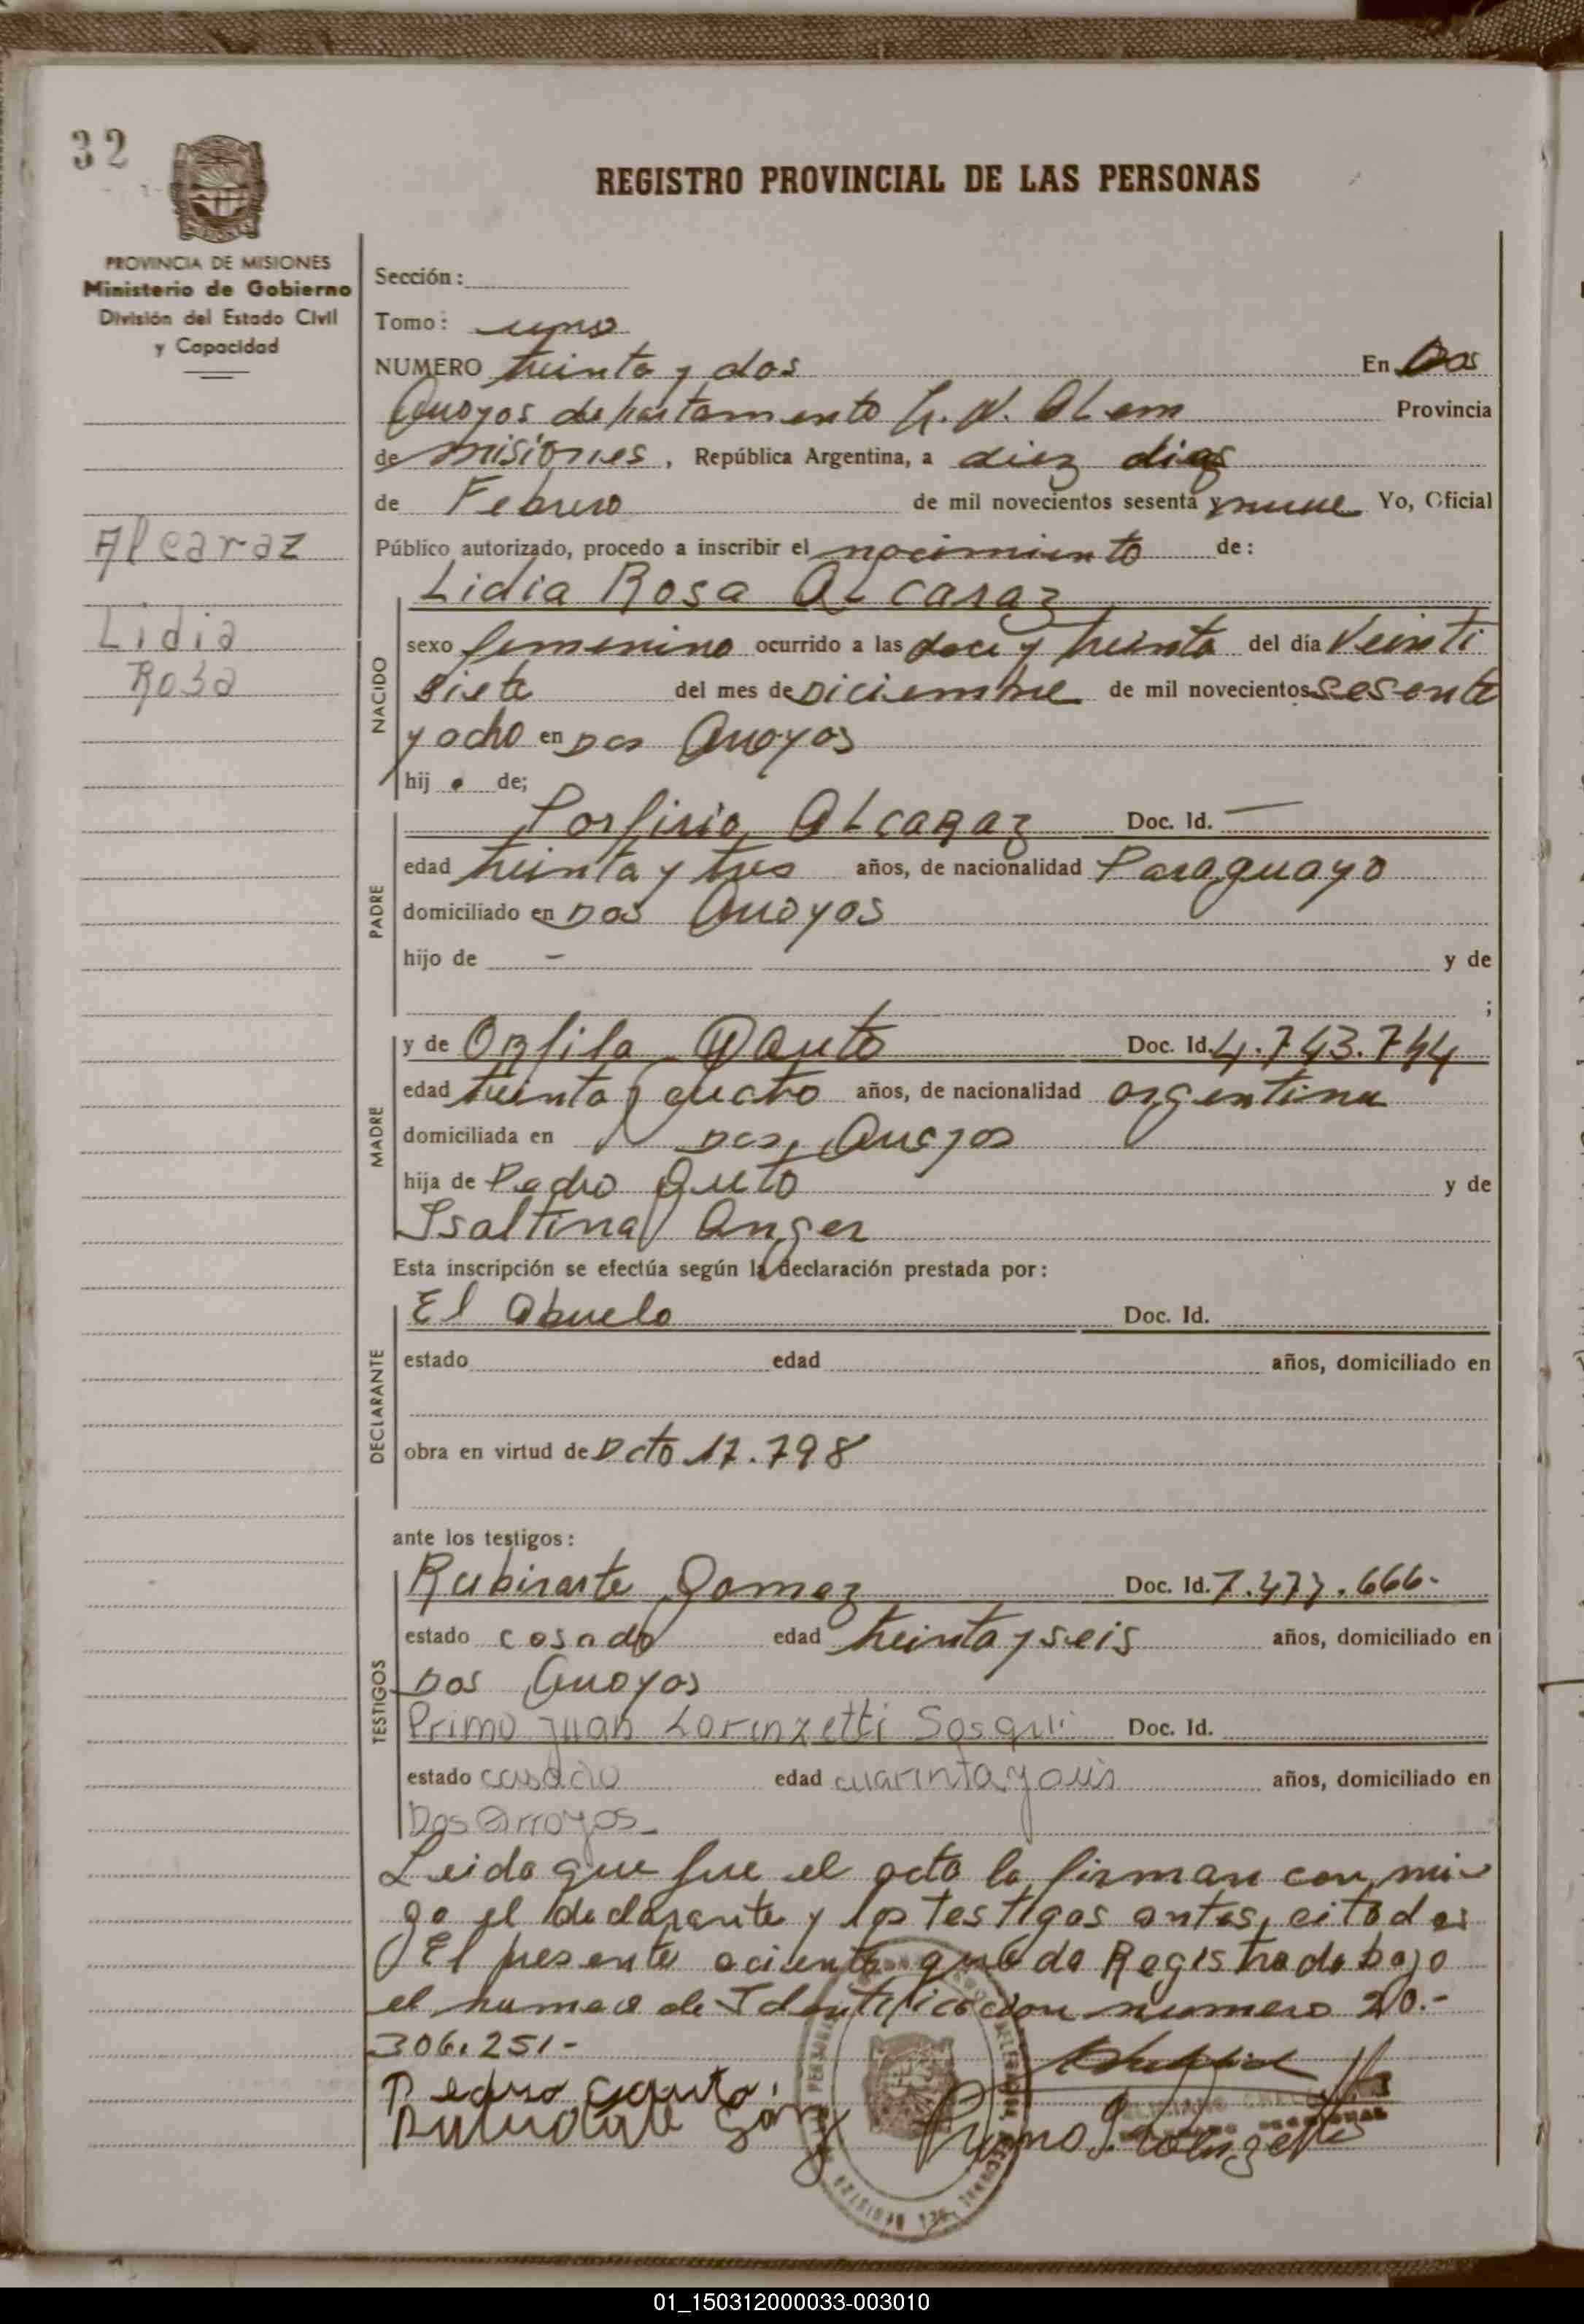 32
REGISTRO PROVINCIAL DE LAS PERSONAS
PROVINCIA DE MISIONES
Ministerio de Gobierno
División del Estado Civil
y Capacidad
Alcaraz
Lidia
Rosa
Sección:
Tomo: uno
NUMERO treinta y dos En Dos
Arroyos departamento L. N. ALem Provincia
de misiones, República Argentina, a diez dias
de Febrero de mil novecientos sesenta y nueve Yo, Oficial
Público autorizado, procedo a inscribir el nacimiento de:
Lidia Rosa ALcaraz
NACIDO
sexo femenino ocurrido a las doce y treinta del día Veinti
siete del mes de Diciembre de mil novecientos sesenta
y ocho en Dos Arroyos
hij a de;
PADRE
Porfirio ALcaraz Doc. Id. —
edad treinta y tres años, de nacionalidad Paraguayo
domiciliado en Dos Arroyos
hijo de - y de
;
MADRE
y de Orfila Doc. Id. 4.743.744
edad treinta y cuatro años, de nacionalidad argentina
domiciliada en Dos Arroyos
hija de Pedro y de
Isaltina Anger
Esta inscripción se efectúa según la declaración prestada por:
DECLARANTE
El abuelo Doc. Id.
estado edad años, domiciliado en
obra en virtud de Dcto 17.798
ante los testigos:
TESTIGOS
Rubirarte Gomez Doc. Id. 7.477.666.-
estado casado edad treinta y seis años, domiciliado en
Dos Arroyos
Primo Juan Lorenzetti Doc. Id.
estado casado edad años, domiciliado en
Dos Arroyos
Leida que fue el acta la firman con mi-
go el declarante y los testigos antes citados
El presente aciento queda Registrado bajo
el numero de Identificacion numero 20.-
306.251-
Pedro
01_150312000033-003010